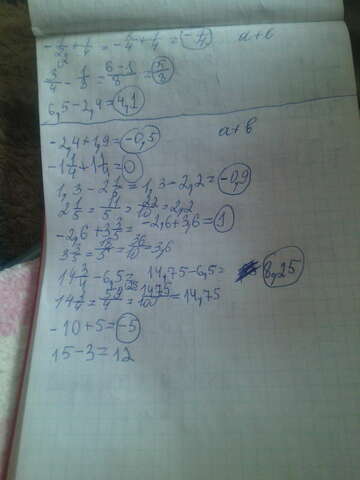 -1/2 + 1/4 = -2/4 + 1/4 = -1/4 a+b
3/4 - 1/8 = 6-1/8 = 5/8
6,5-2,4=4,1
-2,4+1,9=-0,5 a+b
-1 1/4 + 1 1/4 = 0
1,3 - 2 1/5 = 1,3-2,2=-0,9
2 1/5 = 11/5 = 22/10 = 2,2
-2,6 + 3 3/5 = -2,6+3,6=1
3 3/5 = 18/5 = 36/10 = 3,6
14 3/4 - 6,5 = 14,75-6,5= 8,25
14 3/4 = 59/4 = 1475/100 = 14,75
-10+5=-5
15-3=12